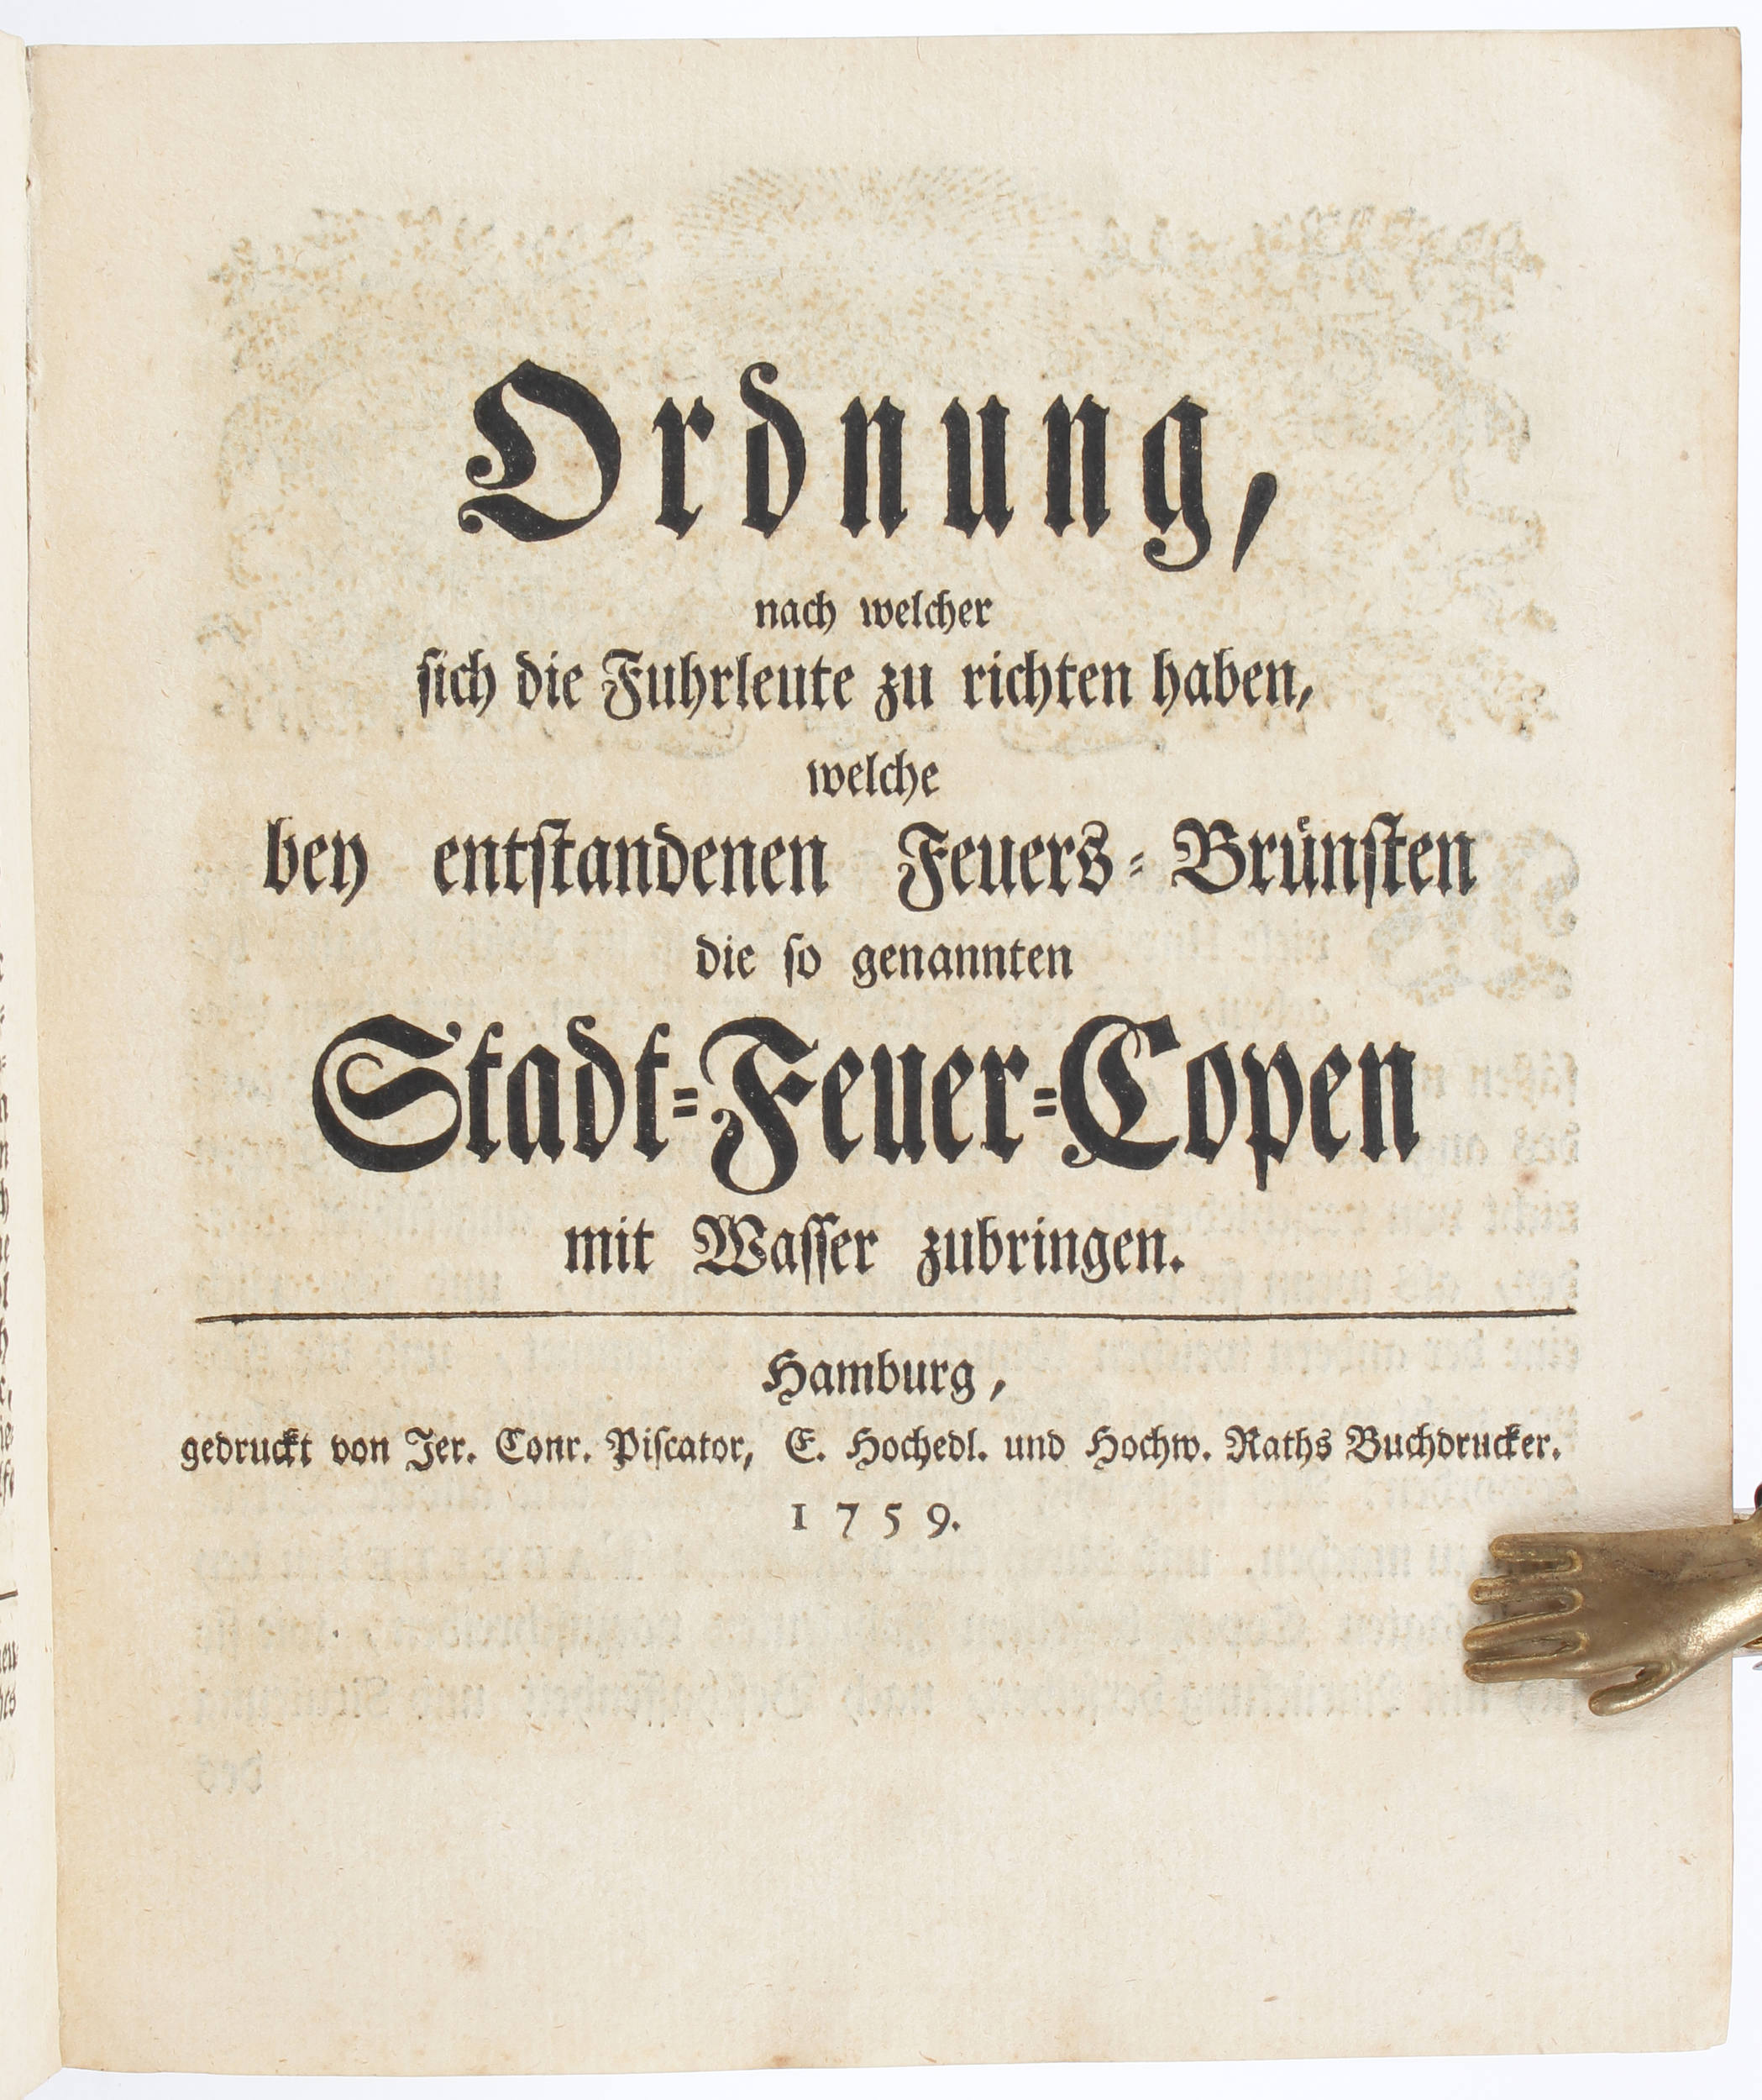 Ordnung,
nach welcher
sich die Fuhrleute zu richten haben,
welche
bey entstandenen Feuers-Brünsten
die so genannten
Stadt-Feuer-Copen
mit Wasser zubringen.
Hamburg,
gedruckt von Jer. Conr. Piscator, E. Hochedl. und Hochw. Raths Buchdrucker.
1759.